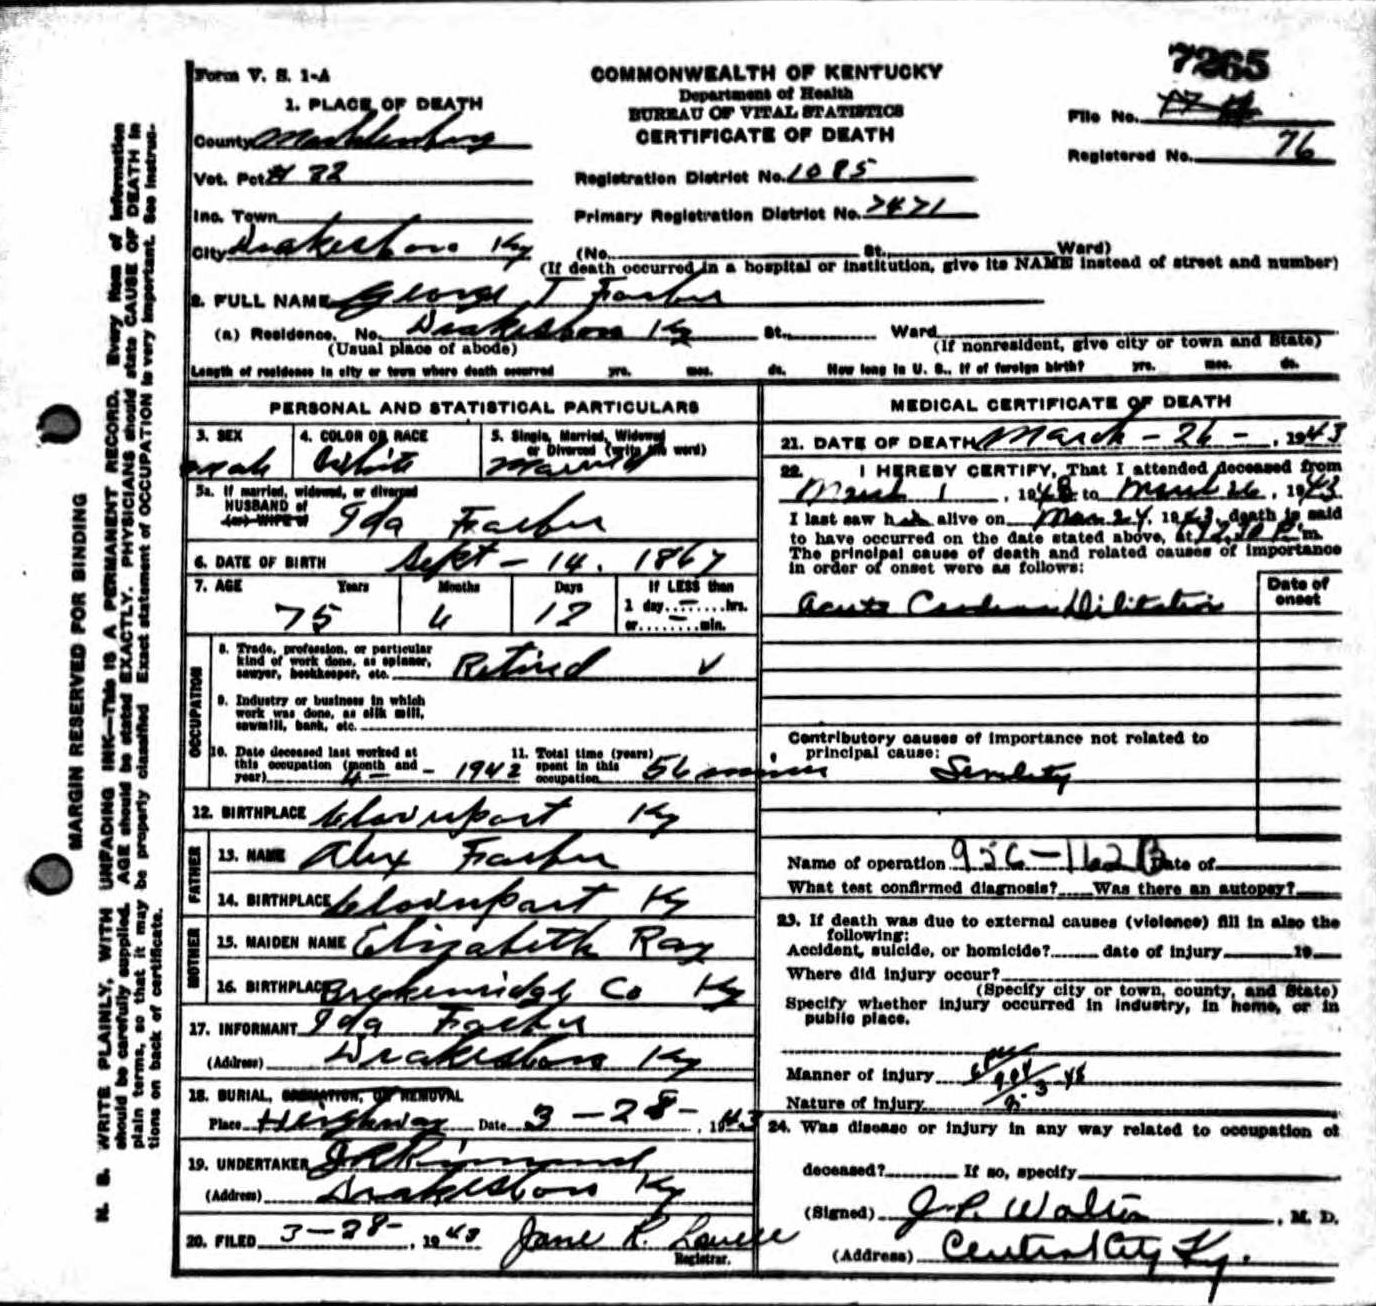 7265
Form V. S. 1-A
COMMONWEALTH OF KENTUCKY
Department of Health
BUREAU OF VITAL STATISTICS
CERTIFICATE OF DEATH
File No.
Registered No. 76
1. PLACE OF DEATH
County
Vot. Pct # 22
Inc. Town
City Drakesboro Ky
Registration District No. 1085
Primary Registration District No. 7471
(No. St., Ward)
(If death occurred in a hospital or institution, give its NAME instead of street and number)
2. FULL NAME George T
(a) Residence. No. Drakesboro Ky St., Ward
(Usual place of abode) (If nonresident, give city or town and State)
Length of residence in city or town where death occurred yrs. mos. ds. How long in U. S., if of foreign birth? yrs. mos. ds.
PERSONAL AND STATISTICAL PARTICULARS
3. SEX male
4. COLOR OR RACE White
5. Single, Married, Widowed or Divorced (write the word) Married
5a. If married, widowed, or divorced
HUSBAND of
(or) WIFE of
Ida
6. DATE OF BIRTH Sept - 14. 1867
7. AGE Years Months Days If LESS than
75 12 1 day ........hrs.
or........min.
OCCUPATION
8. Trade, profession, or particular
kind of work done, as spinner,
sawyer, bookkeeper, etc. Retired
9. Industry or business in which
work was done, as silk mill,
sawmill, bank, etc.
10. Date deceased last worked at
this occupation (month and
year) 4 - - 1942
11. Total time (years)
spent in this
occupation 56
12. BIRTHPLACE Ky
FATHER
13. NAME Alex
14. BIRTHPLACE Ky
MOTHER
15. MAIDEN NAME Elizabeth Ray
16. BIRTHPLACE Breckenridge Co Ky
17. INFORMANT Ida
(Address) Drakesboro Ky
18. BURIAL, CREMATION, OR REMOVAL
Place Date 3 - 28 - , 1943
19. UNDERTAKER
(Address) Drakesboro Ky
20. FILED 3-28- , 1943 Jane R.
Registrar.
MEDICAL CERTIFICATE OF DEATH
21. DATE OF DEATH March - 26 - , 1943
22. I HEREBY CERTIFY, That I attended deceased from
March 1 , 1943 to March 26 , 1943
I last saw h alive on Mar 24, 1943 death is said
to have occurred on the date stated above, at m.
The principal cause of death and related causes of importance
in order of onset were as follows:
Date of
onset
Acute Cardiac Dilitation
Contributory causes of importance not related to
principal cause:
Senility
Name of operation 956-162 B Date of
What test confirmed diagnosis? Was there an autopsy?
23. If death was due to external causes (violence) fill in also the
following:
Accident, suicide, or homicide? date of injury 19
Where did injury occur?
(Specify city or town, county, and State)
Specify whether injury occurred in industry, in home, or in
public place.
Manner of injury
Nature of injury
24. Was disease or injury in any way related to occupation of
deceased? If so, specify
(Signed) J. P. Walton , M. D.
(Address) Central City Ky.
MARGIN RESERVED FOR BINDING
N. B. WRITE PLAINLY, WITH UNFADING INK—This IS A PERMANENT RECORD. Every item of information
should be carefully supplied. AGE should be stated EXACTLY. PHYSICIANS should state CAUSE OF DEATH in
plain terms, so that it may be properly classified. Exact statement of OCCUPATION is very important. See instruc-
tions on back of certificate.